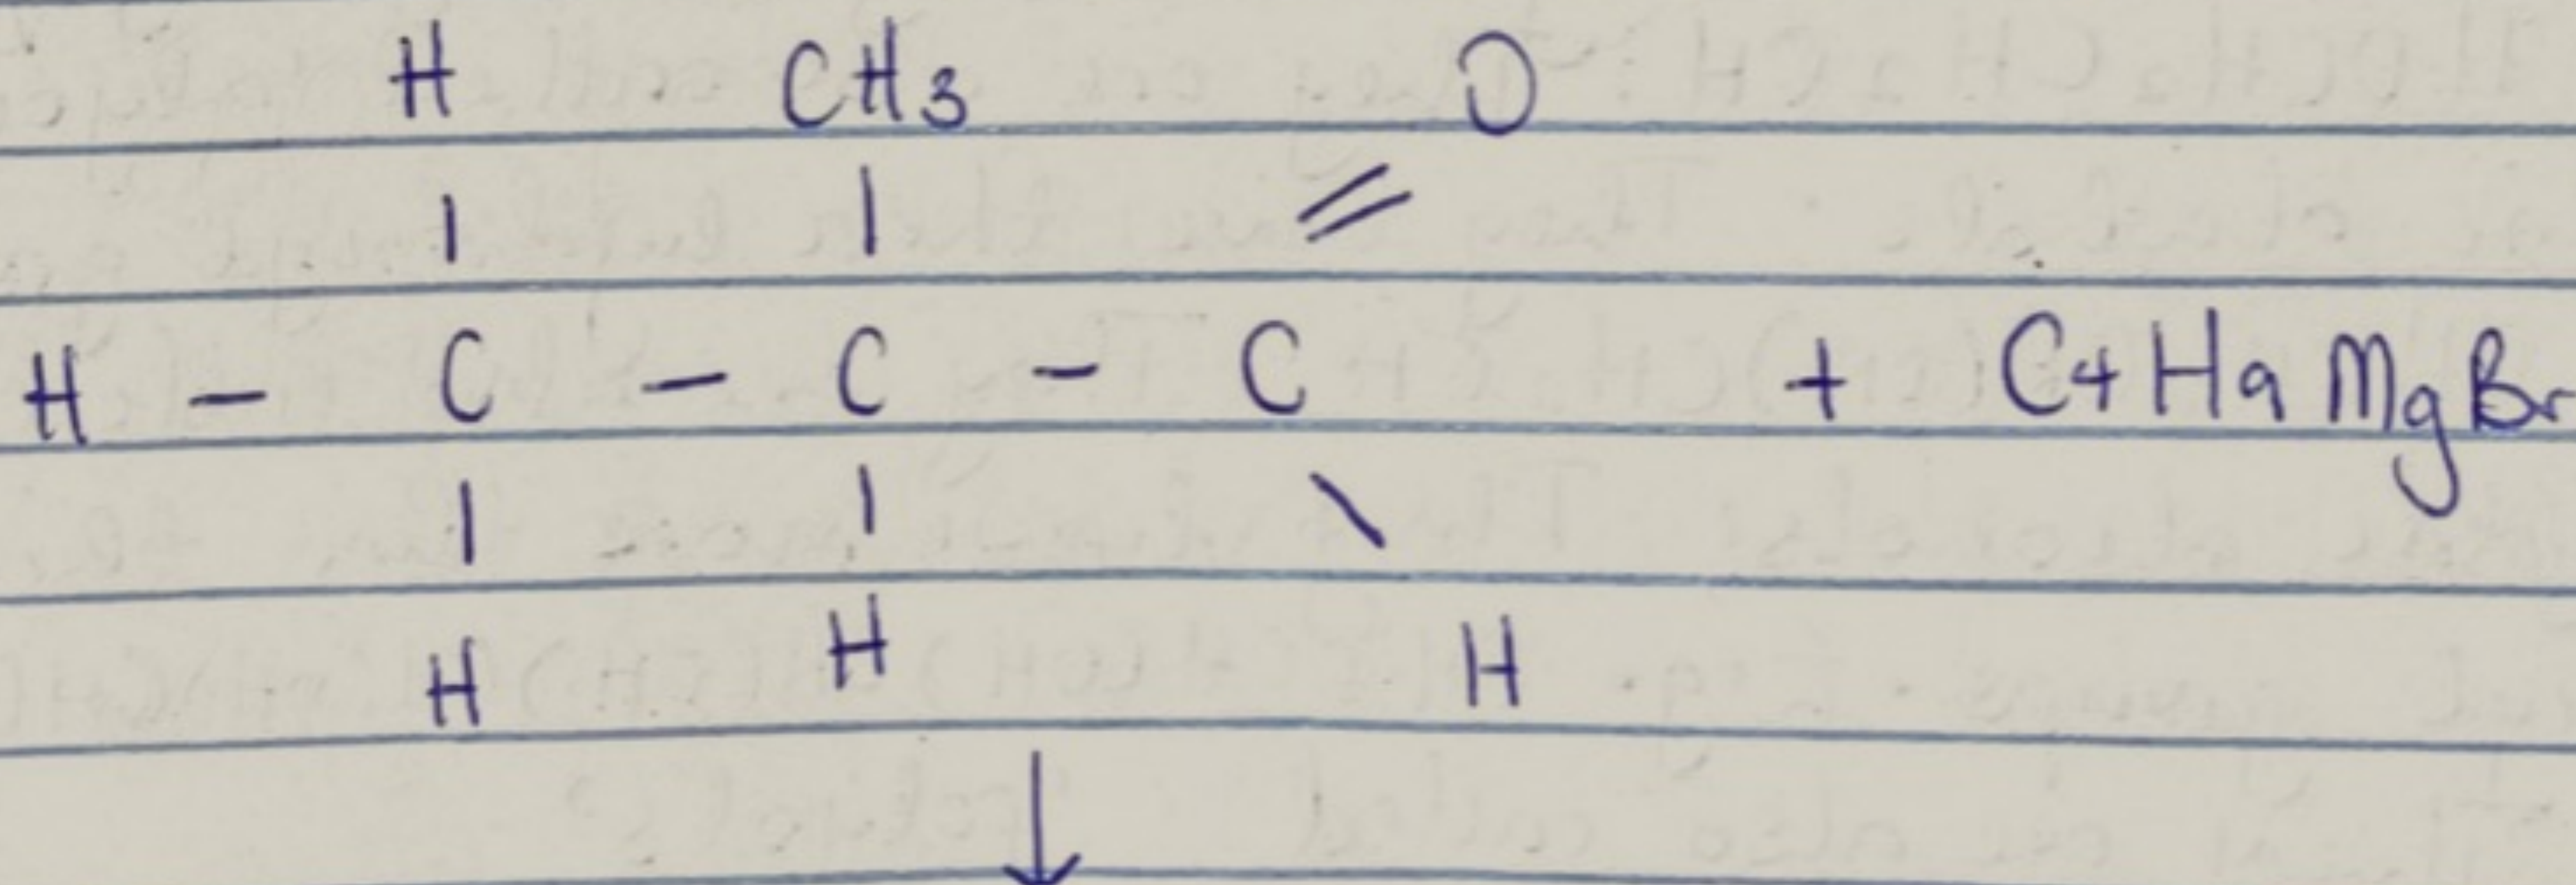 H CH3 O
| | //
H - C - C - C + C4H9MgBr
| | \
H H H
↓